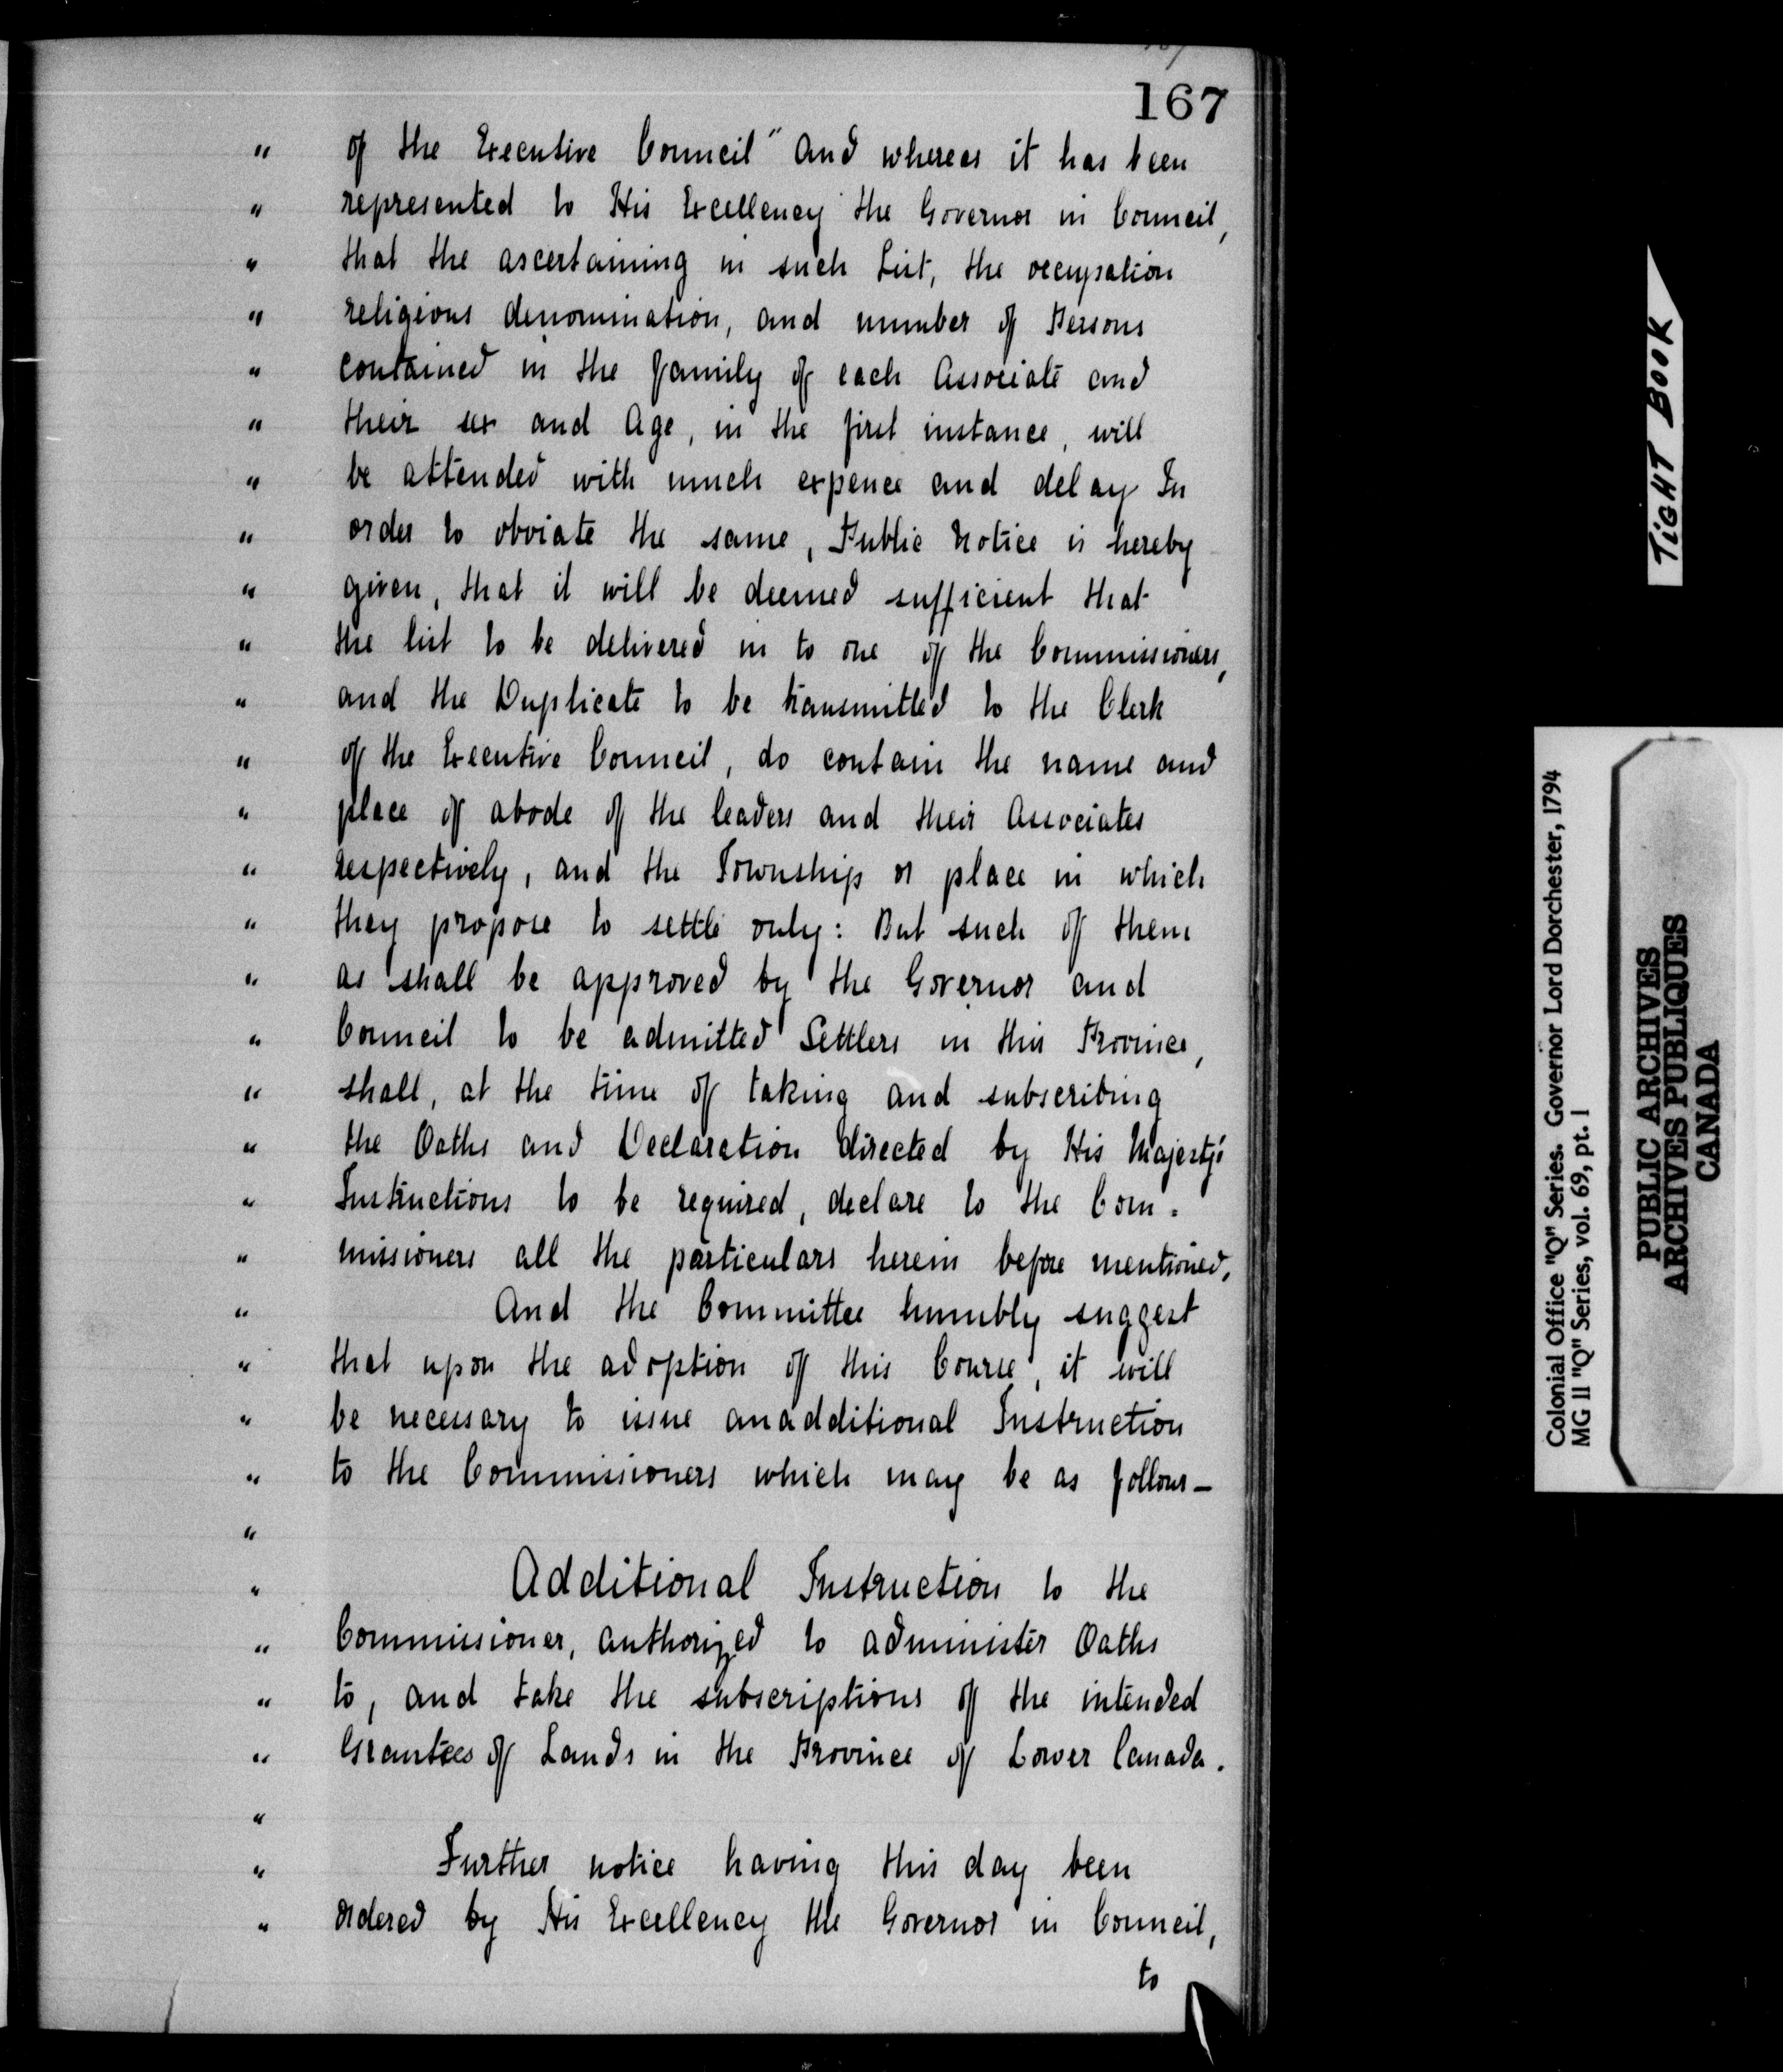 167
" of the Executive Council" And whereas it has been
" represented to His Excellency the Governor in Council,
" that the ascertaining in such List, the occupation
" religious denomination, and number of Persons
" contained in the family of each Associate and
" their sex and Age, in the first instance, will
" be attended with much expence and delay In
" order to obviate the same, Public Notice is hereby
" given, that it will be deemed sufficient that
" the list to be delivered in to one of the Commissioners,
" and the Duplicate to be transmitted to the Clerk
" of the Executive Council, do contain the name and
" place of abode of the leaders and their Associates
" respectively, and the Township or place in which
" they propose to settle only: But such of them
" as shall be approved by the Governor and
" Council to be admitted Settlers in this Province,
" shall, at the time of taking and subscribing
" the Oaths and Declaration directed by His Majesty's
" Instructions to be required, declare to the Com-
" missioners all the particulars herein before mentioned.
" And the Committee humbly suggest
" that upon the adoption of this Course, it will
" be necessary to issue anadditional Instruction
" to the Commissioners which may be as follows—
"
" Additional Instruction to the
" Commissioner, authorized to administer Oaths
" to, and take the subscriptions of the intended
" Grantees of Lands in the Province of Lower Canada.
"
" Further notice having this day been
" ordered by His Excellency the Governor in Council,
to
TIGHT BOOK
Colonial Office "Q" Series. Governor Lord Dorchester, 1794
MG 11 "Q" Series, vol. 69, pt. 1
PUBLIC ARCHIVES
ARCHIVES PUBLIQUES
CANADA